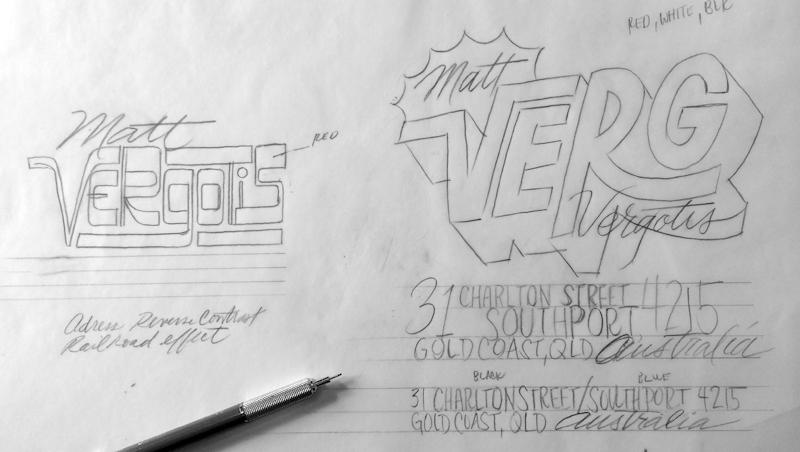 RED, WHITE, BLK
Matt
VERGOTIS
RED
Adress Reverse Contrast
Railroad effect
Matt
VERG
Vergotis
31 CHARLTON STREET 4215
SOUTHPORT
GOLD COAST, QLD Australia
BLACK BLUE
31 CHARLTON STREET/SOUTHPORT 4215
GOLD COAST, QLD Australia